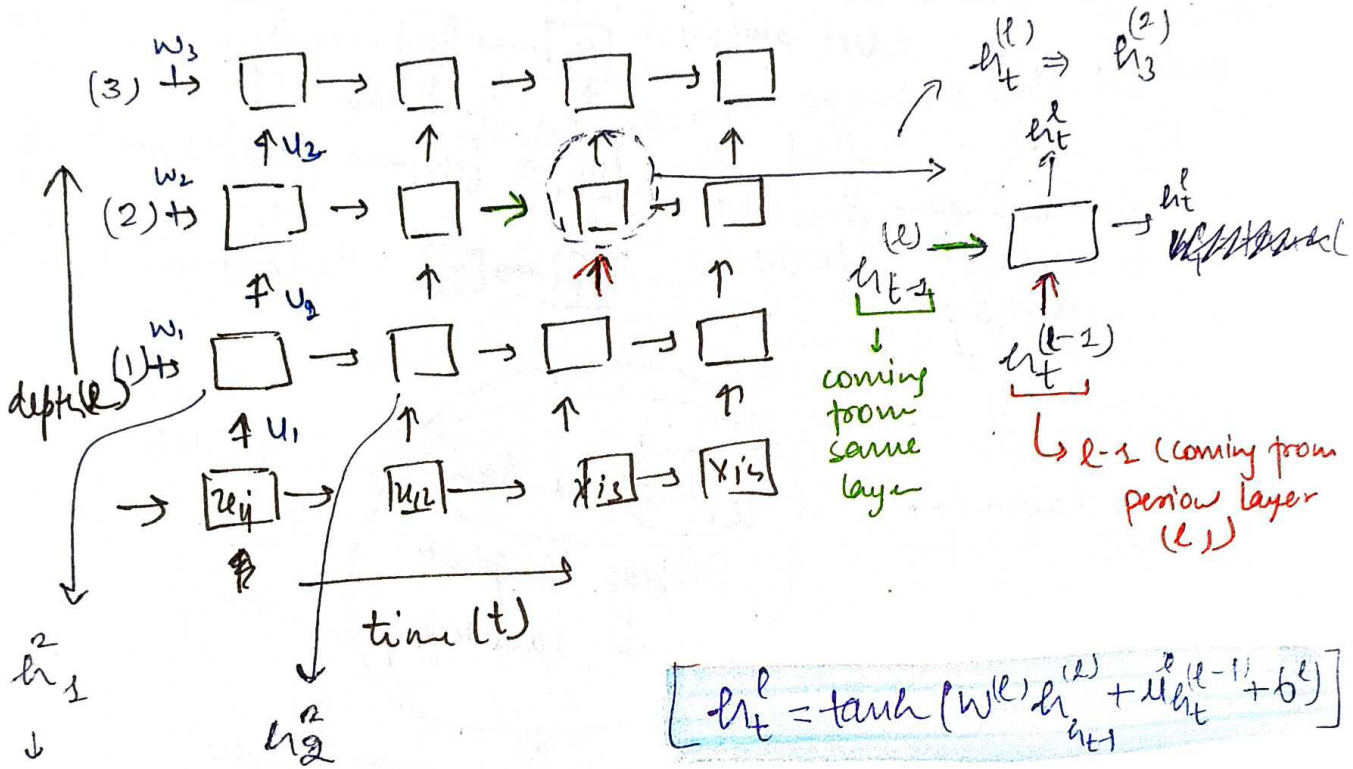 W3
(3)
U3
W2
(2)
U2
W1
(1)
depth(l)
U1
xij xi2 xi3 xi3
time (t)
h^2_1
h^2_2
h_t^(l) ⇒ h_3^(2)
h_t^l
h_t^l
h_{t-1}^(l)
coming
from
same
layer
h_t^(l-1)
l-1 (coming from
periow layer
(l))
[ h_t^l = tanh (W^(l) h_{t-1}^(l) + U^l h_t^(l-1) + b^l) ]